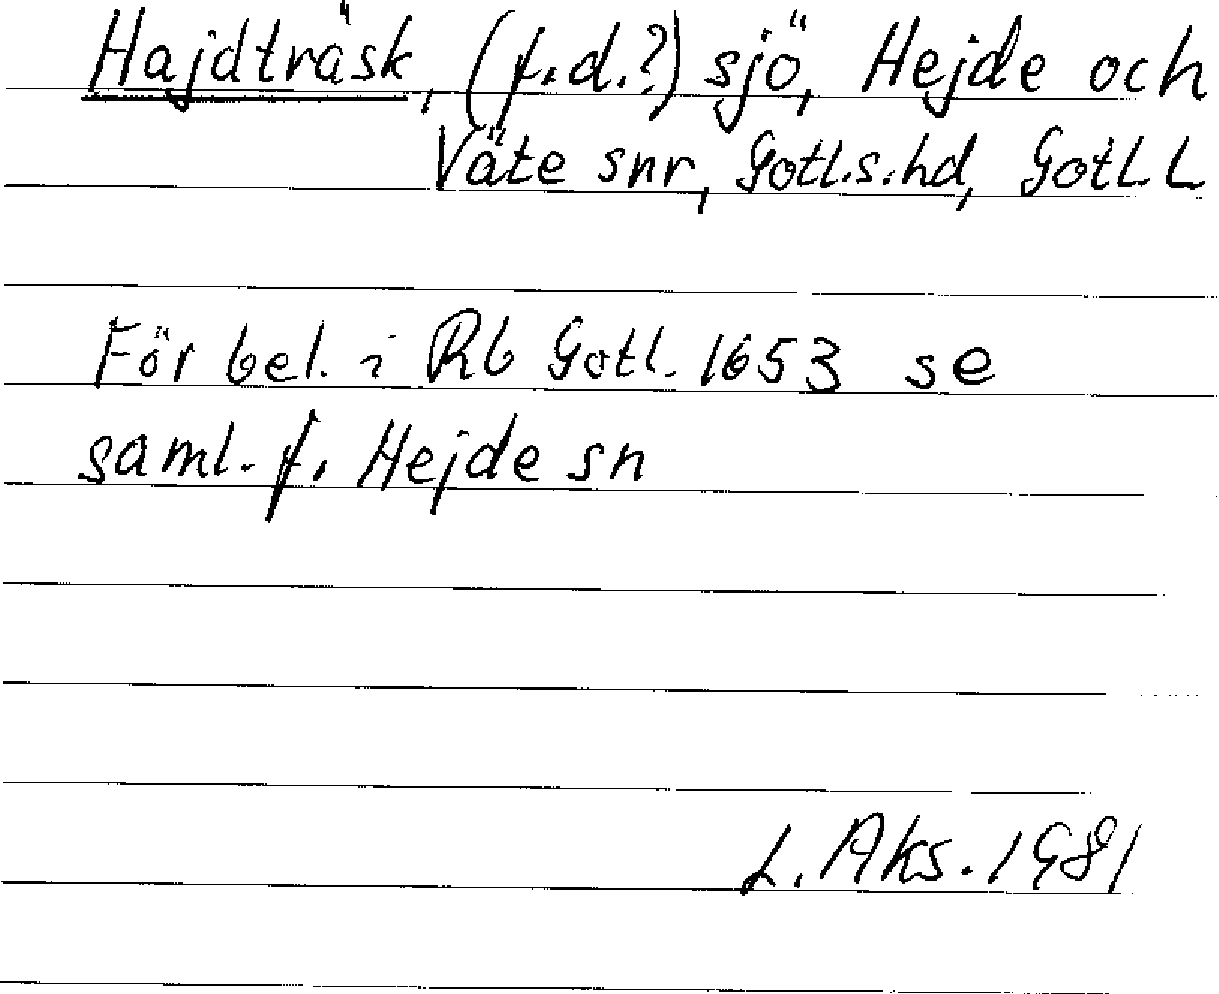 Hajdträsk, (f.d.?) sjö, Hejde och
Väte snr, Gotl.s.hd, Gotl. L
För bel. i Rb Gotl. 1653 se
saml. f. Hejde sn
L. Aks. 1981